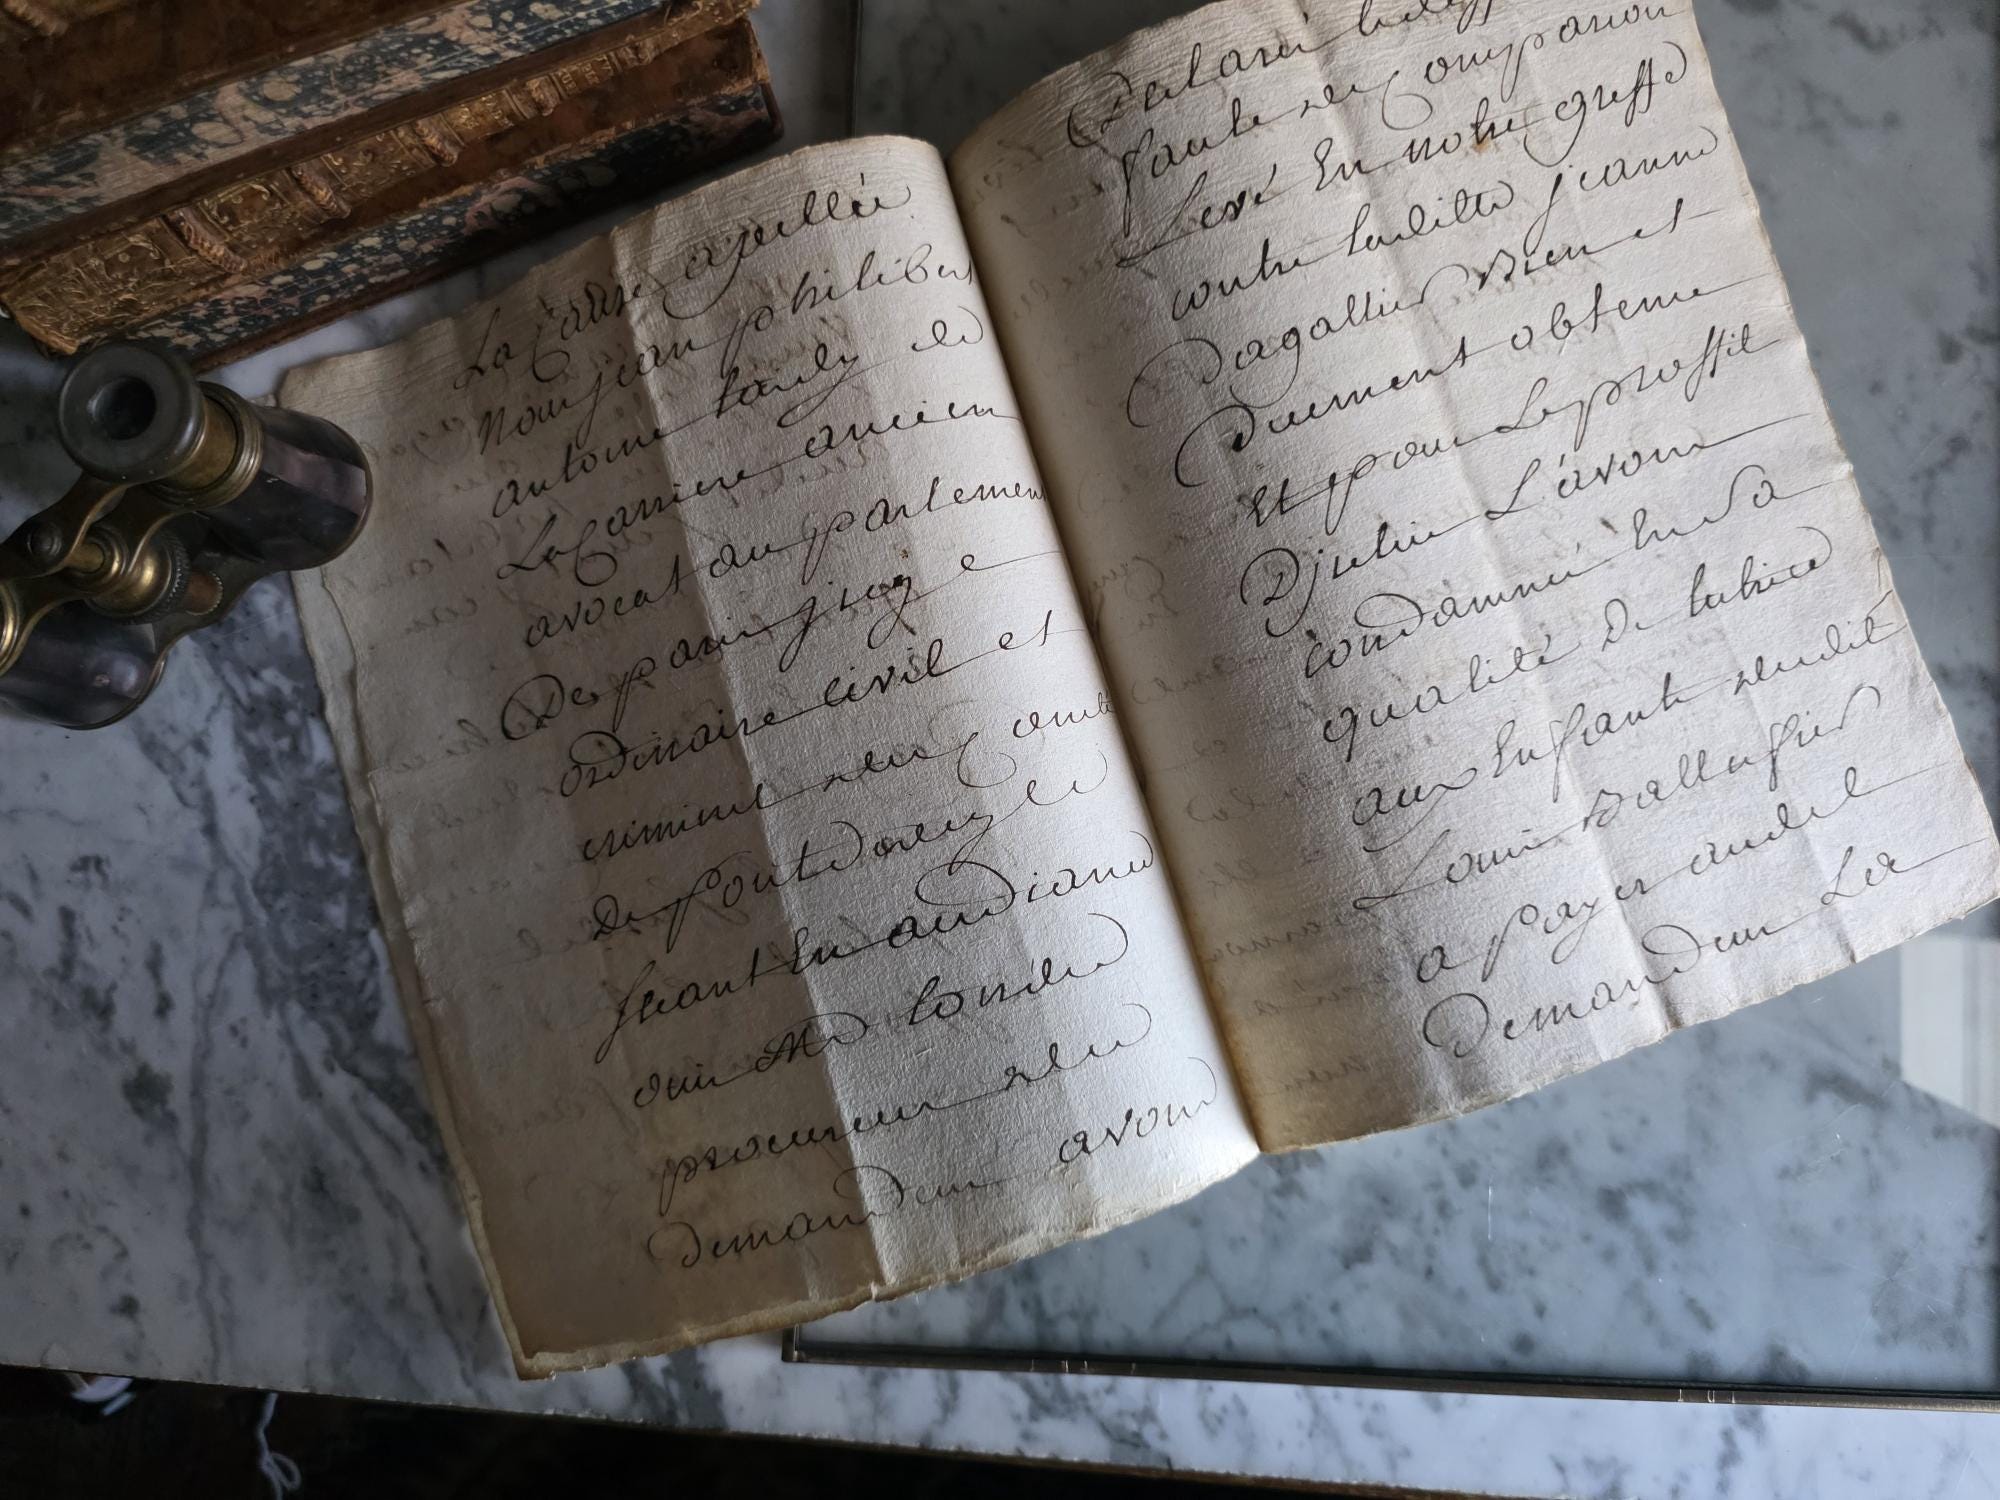 La Cause apellée
Nous jean philibert
antoine tardy de
La Carriere ancien
avocat au parlement
De paris juge
ordinaire civil et
criminel du Comté
De Pont De vey le
seant En audiance
oui Me
procureur du
Demandeur avons
Declaré
faute de Comparion
Levé En notre greffe
contre laditte jeanne
Pagallier Bien et
Duement obtenu
Et pour Le proffit
D'jceluy L'avons
condamné En Sa
qualité De tutrice
aux Enfants dudit
Louis
a Payer audit
Demandeur La